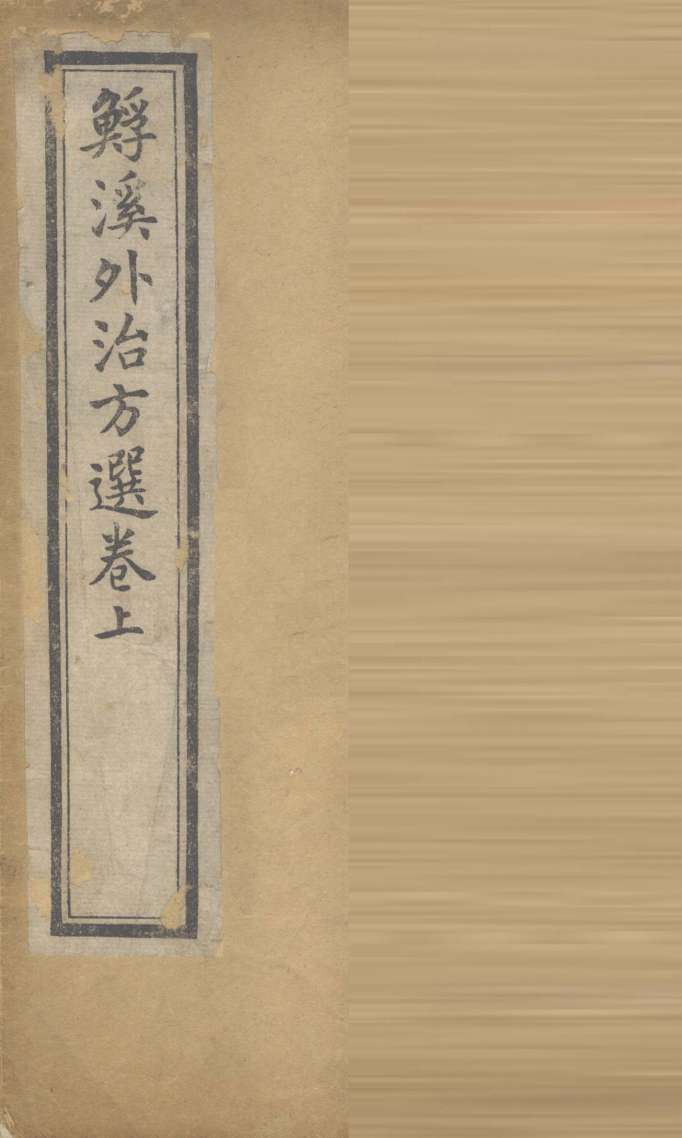 鯚溪外治方選卷上